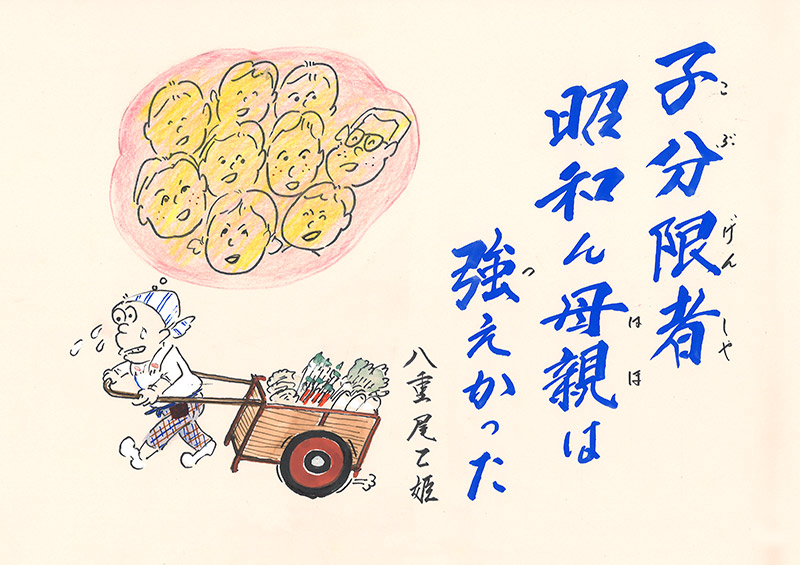 子分限者
こぶげんしや
昭和ん母親は
はほ
強えかった
つ
八重尾乙姫